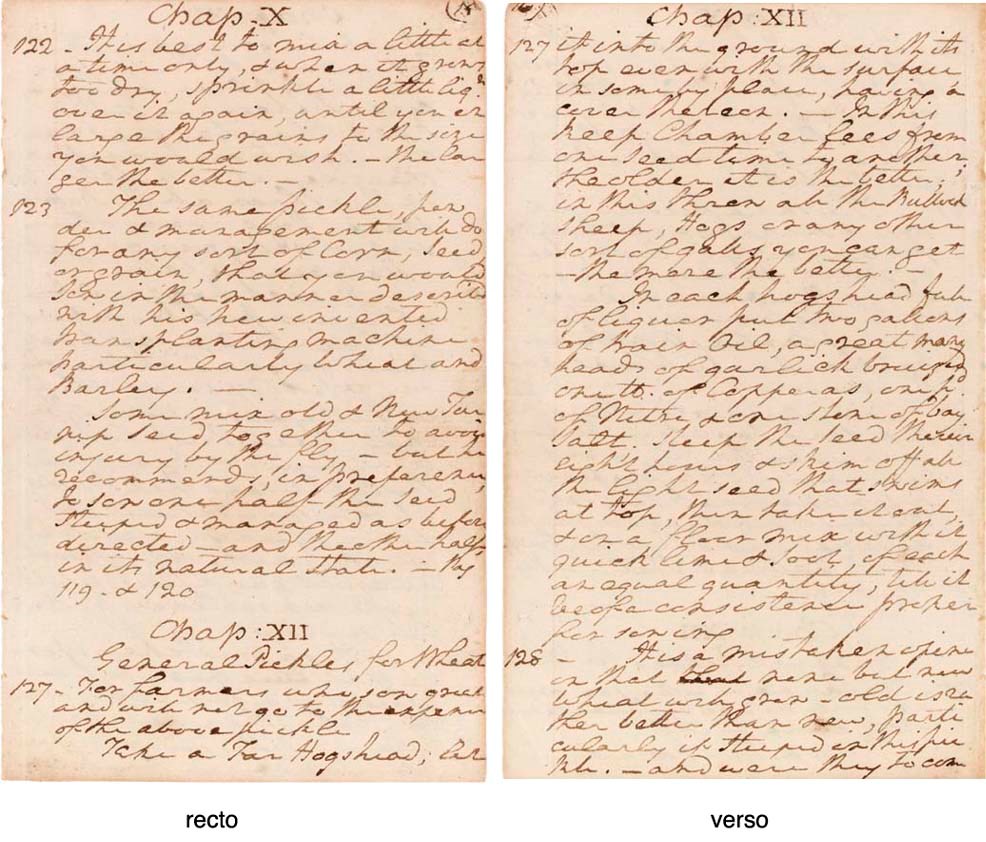 Chap. X
122 - It is best to mix a little at
a time only, & when it grows
too dry, sprinkle a little liqr
over it again, until you en
large the grains to the size
you would wish. - the lar
ger the better. -
123 The same pickle, pow
der & management will do
for any sort of Corn, seed
or grain, that you would
sow in the manner described
with his new invented
transplanting machine
particularly Wheat and
Barley. -
Some mix old & New Tur
nip Seed together to avoid
injury by the fly - but he
recommends, in preference,
to sow one half the seed
steeped & managed as before
directed - and the other half
in its natural state. - Pag
119. & 120
Chap: XII
General Pickles for Wheat
127 - For farmers who sow great
and will not go to the expence
of the above pickle
Take a Tar Hogshead; let
recto
Chap: XII
127 it into the ground with its
top even with the surface
in some dry place, having a
cover thereon. - In this
keep Chamber lees from
one seed time to another,
the older it is the better;
in this throw all the Bullock
Sheep, Hogs or any other
sort of galls you can get
- the more the better. -
In each hogshead full
of liquor put two gallons
of train Oil, a great many
heads of garlick bruized
one lb. of Copperas, one lb.
of Nitre & one stone of bay
salt. Steep the seed therein
eight hours & skim off all
the light seed that swims
at top, then take it out,
& on a floor mix with it
quick lime & soot, of each
an equal quantity, till it
be of a consistence proper
for sowing
128 - It is a mistaken opini
on that none but new
wheat will grow - old is ra
ther better than new, parti
cularly if steeped in this pic
kle. - and were they to com
verso